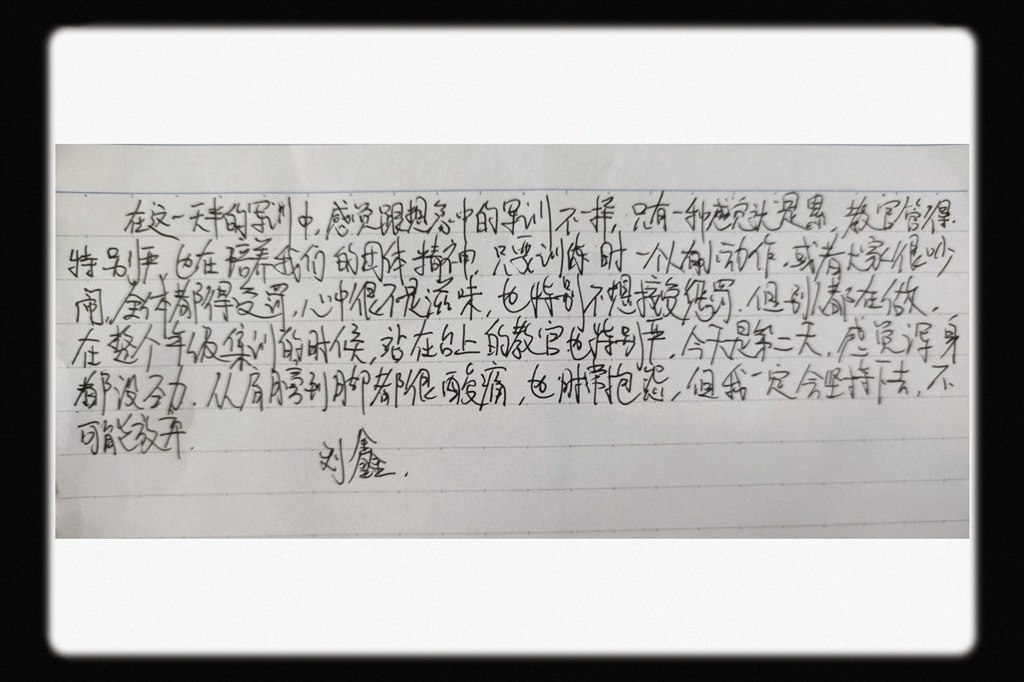 在这一天半的军训中，感觉跟想象中的军训不一样，只有一种感觉就是累，教官管得
特别严，也在培养我们的团体精神，只要训练时一个人有小动作，或者大家很吵
闹，全体都得受罚，心中很不是滋味，也特别不想接受惩罚，但别人都在做，
在整个年级集训的时候，站在台上的教官也特别严，今天是第二天，感觉浑身
都没劲，从肩膀到脚都很酸痛，也时常抱怨，但我一定会坚持下去，不
可能放弃．
刘鑫．